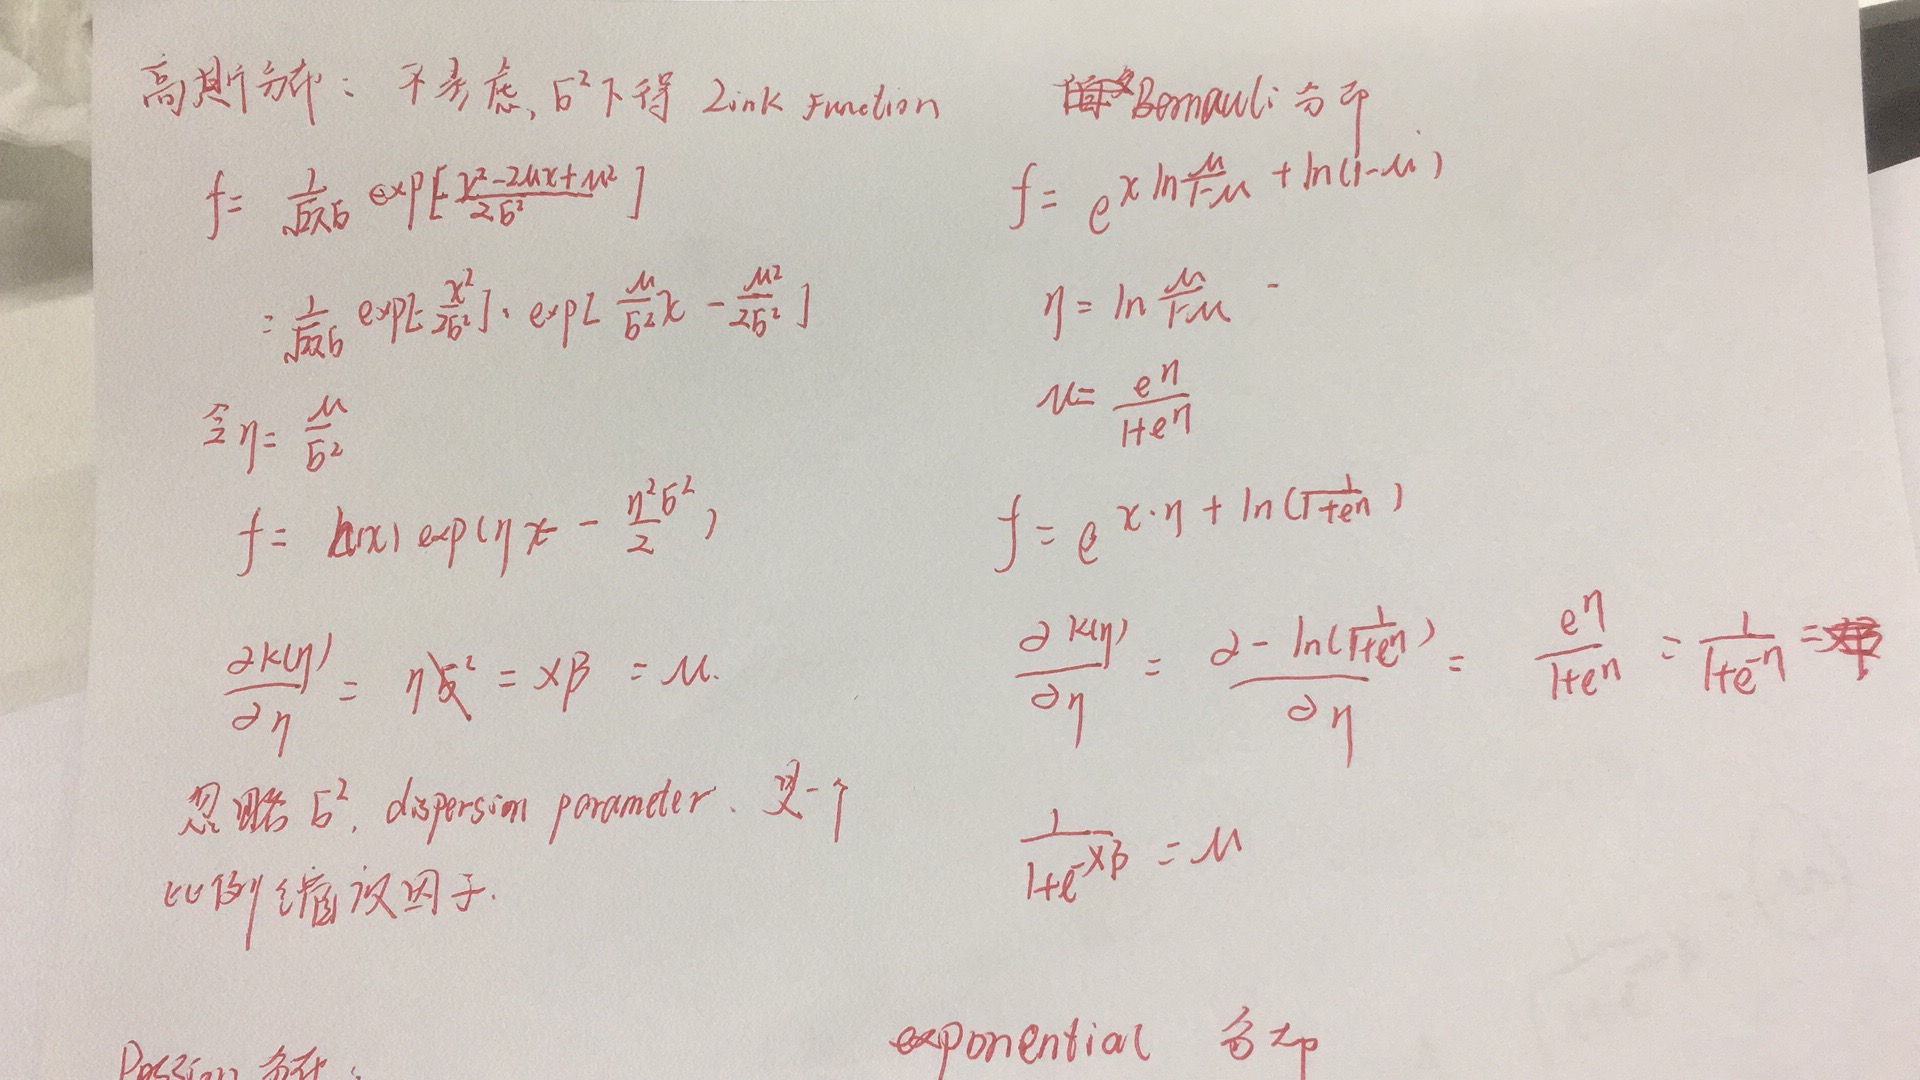 高斯分布：不考虑，σ²下得 Link Function
f= 1/√2πσ exp[-x²-2μx+μ²/2σ²]
= 1/√2πσ exp[-x²/2σ²]· exp[μ/σ² x - μ²/2σ²]
令 η= μ/σ²
f= h(x) exp(ηx - η²σ²/2)
∂k(η)/∂η = ησ² = xβ = μ.
忽略 σ², dispersion parameter. 是一个
比例缩放因子.
Possion 分布：
Bernauli 分布
f= e^{x ln μ/1-μ + ln(1-μ)}
η= ln μ/1-μ
μ= e^η/1+e^η
f= e^{x·η + ln(1/1+e^η)}
∂k(η)/∂η = ∂-ln(1/1+e^η)/∂η = e^η/1+e^η = 1/1+e^{-η} =
1/1+e^{-xβ} = μ
exponential 分布